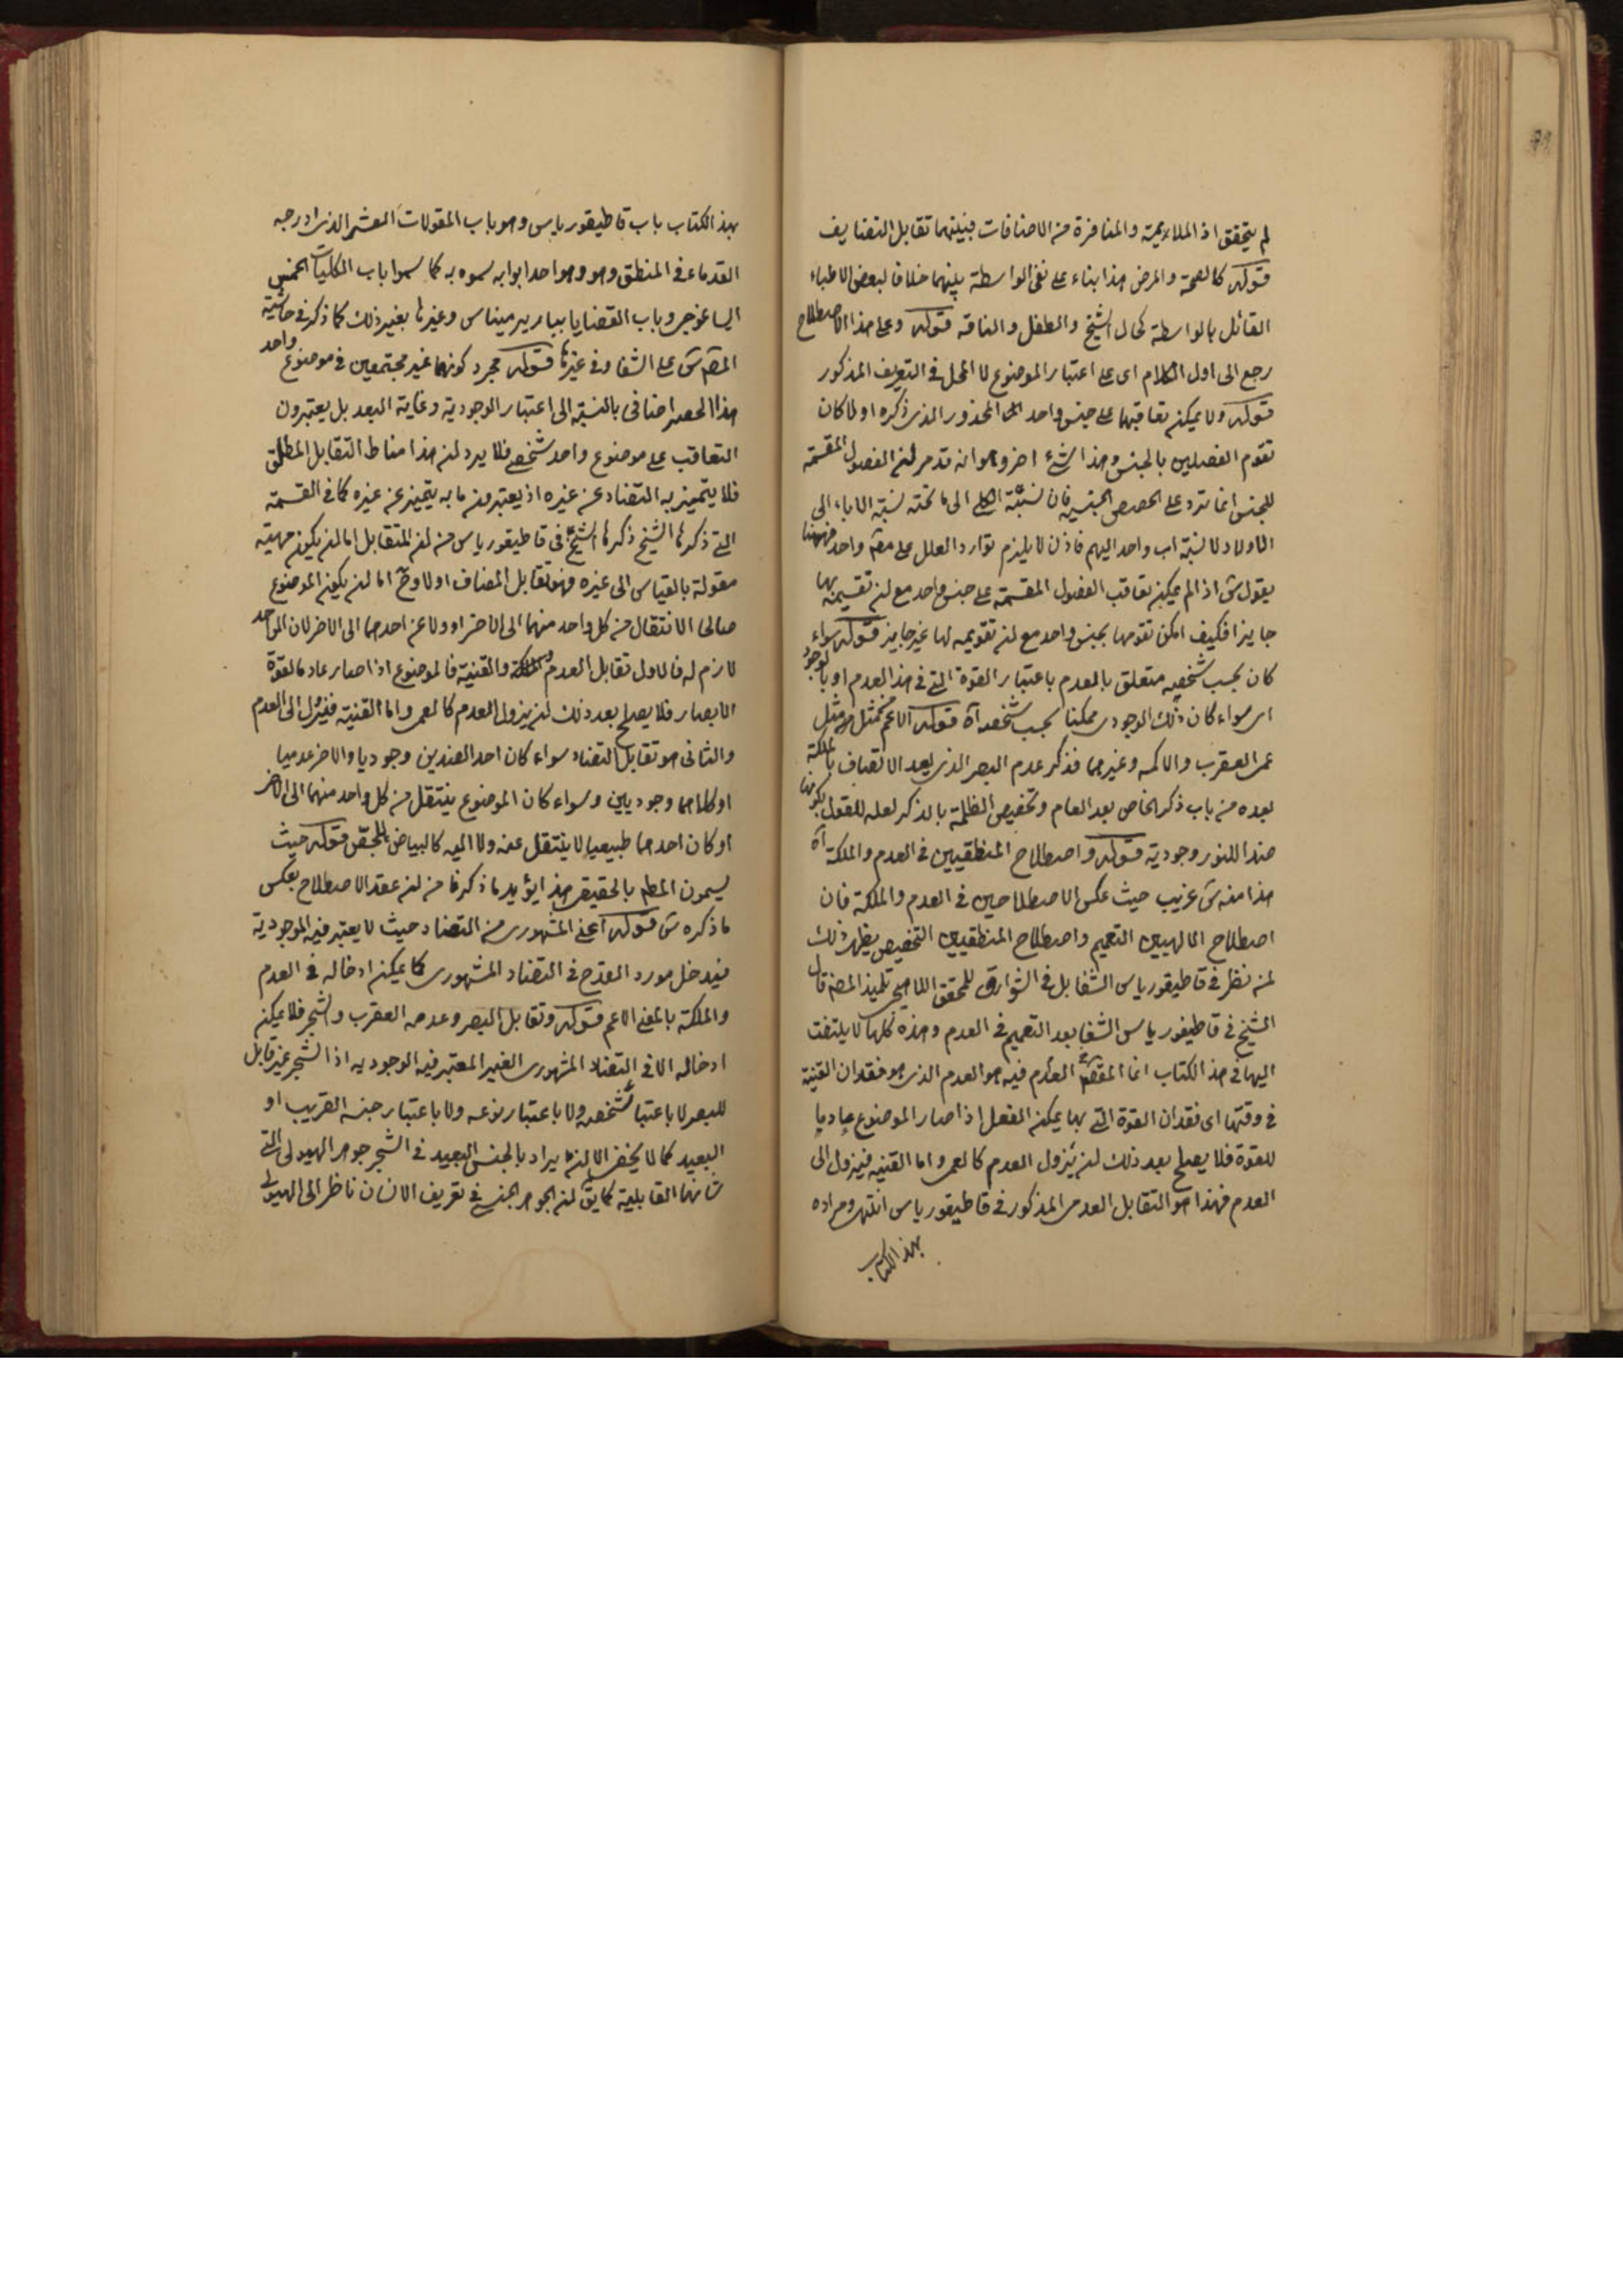 لم يتحقق اذ الملايمية والمنافرة من الاضافات فبينهما تقابل التضايف
قوله كالصحة والمرض هذا بناء على نفى الواسطة بينهما خلافا لبعض الاطباء
القائل بالواسطة كحال الشيخ والطفل والناقه قوله وعلى هذا الاصطلاح
رجع الى اول الكلام اى على اعتبار الموضوع لا المحل فى التعريف المذكور
قوله ولا يمكن تعاقبهما على جنس واحد المحذور الذى ذكره اولا كان
تقوم الفصلين بالجنس وهذا شئ اخر وهو انه قد مر ان الفصول المقسمة
للجنس انما ترد على الحصص الجنسية فان نسبة الكلى الى ما تحته نسبة الاباء الى
الاولاد لا نسبة اب واحد اليهم فاذن لا يلزم توارد العلل على مع واحد فههنا
يقول ش اذا لم يمكن تعاقب الفصول المقسمة على جنس واحد مع ان تقسيمه بها
جايز فكيف امكن تقومها بجنس واحد مع ان تقويمه لها غير جايز قوله سواء
كان بحسب شخصه متعلق بالعدم باعتبار القوة التى فى هذا العدم او بالوجود
اى سواء كان ذلك الوجودى ممكنا بحسب شخصه آه قوله الاعم من مثل
عمى العقرب والاكمه وغيرهما فذكر عدم البصر الذى بعد الاتصاف بالملكة
بعده من باب ذكر الخاص بعد العام وتخصيص الظلمة بالذكر لعله للقول بكونها
ضدا للنور وجودية قوله واصطلاح المنطقيين فى العدم والملكة آه
هذا منه ش غريب حيث عكس الاصطلاحين فى العدم والملكة فان
اصطلاح الالهيين التعميم واصطلاح المنطقيين التخصيص يظهر ذلك
لمن نظر فى قاطيقورياس الشفا بل فى الشوارق للمحقق اللاهيجى تلميذ المص قال
الشيخ فى قاطيغورياس الشفا بعد التعميم فى العدم وهذه كلها لا يلتفت
اليها فى هذا الكتاب انما المقصود العدم فيه هو العدم الذى هو فقدان القنية
فى وقتها اى فقدان القوة التى بها يمكن الفعل اذا صار الموضوع عادما
للقوة فلا يصلح بعد ذلك ان يزول العدم كالعمى واما القنية فيزول الى
العدم فهذا هو التقابل العدمى المذكور فى قاطيقورياس انتهى ومراده
بهذا الكتاب
بهذا الكتاب باب قاطيقورياس وهو باب المقولات العشر الذى ادرجه
القدماء فى المنطق وهو وهو احد ابوابه سموه به كما سموا باب الكليات الخمس
ايساغوجى وباب القضايا بباريرميناس وغيرها بغير ذلك كما ذكر فى حاشية
المص ش على الشفا وفى غيرها قوله مجرد كونهما غير مجتمعين فى موضوع واحد
هذا الحصر اضافى بالنسبة الى اعتبار الوجودية وغاية البعد بل يعتبرون
التعاقب على موضوع واحد شخصى فلا يرد ان هذا مناط التقابل المطلق
فلا يتميز به التضاد عن غيره اذ يعتبر فيه ما به يتميز عن غيره كما فى القسمة
التى ذكرها الشيخ ذكرها الشيخ فى قاطيقورياس من ان المتقابل اما ان يكون مهيته
مقولة بالقياس الى غيره فهو تقابل المضاف اولا وح اما ان يكون الموضوع
صالحا الانتقال من كل واحد منهما الى الاخر او ولا عن احدهما الى الاخر لان الواحد
لازم له فالاول تقابل العدم والملكة والقنية فالموضوع اذا صار عادما لقوة
الابصار فلا يصلح بعد ذلك ان يزول العدم كالعمى واما القنية فيزول الى العدم
والثانى هو تقابل التضاد سواء كان احد الضدين وجوديا والاخر عدميا
او كلاهما وجوديين وسواء كان الموضوع ينتقل من كل واحد منهما الى الاخر
او كان احدهما طبيعيا لا ينتقل عنه ولا اليه كالبياض للجص قوله حيث
يسمون المط بالحقيقى هذا يؤيد ما ذكرنا من ان عقد الاصطلاح بعكس
ما ذكره ش قوله اعنى المشهورى من التضاد حيث لا يعتبر فيه الوجودية
فيدخل مورد القدح فى التضاد المشهورى كما يمكن ادخاله فى العدم
والملكة بالمعنى الاعم قوله وتقابل البصر وعدمه العقرب والشجر فلا يمكن
ادخاله الا فى التضاد المشهورى الغير المعتبر فيه الوجوديه اذ الشجر غير قابل
للبصر لا باعتبار شخصه ولا باعتبار نوعه ولا باعتبار جنسه القريب او
البعيد كما لا يخفى الا ان يراد بالجنس البعيد فى الشجر جوهر الهيولى التى
شانها القابلية كما يق ان الجوهر الجنسى فى تعريف الانسان ناظر الى الهيولى